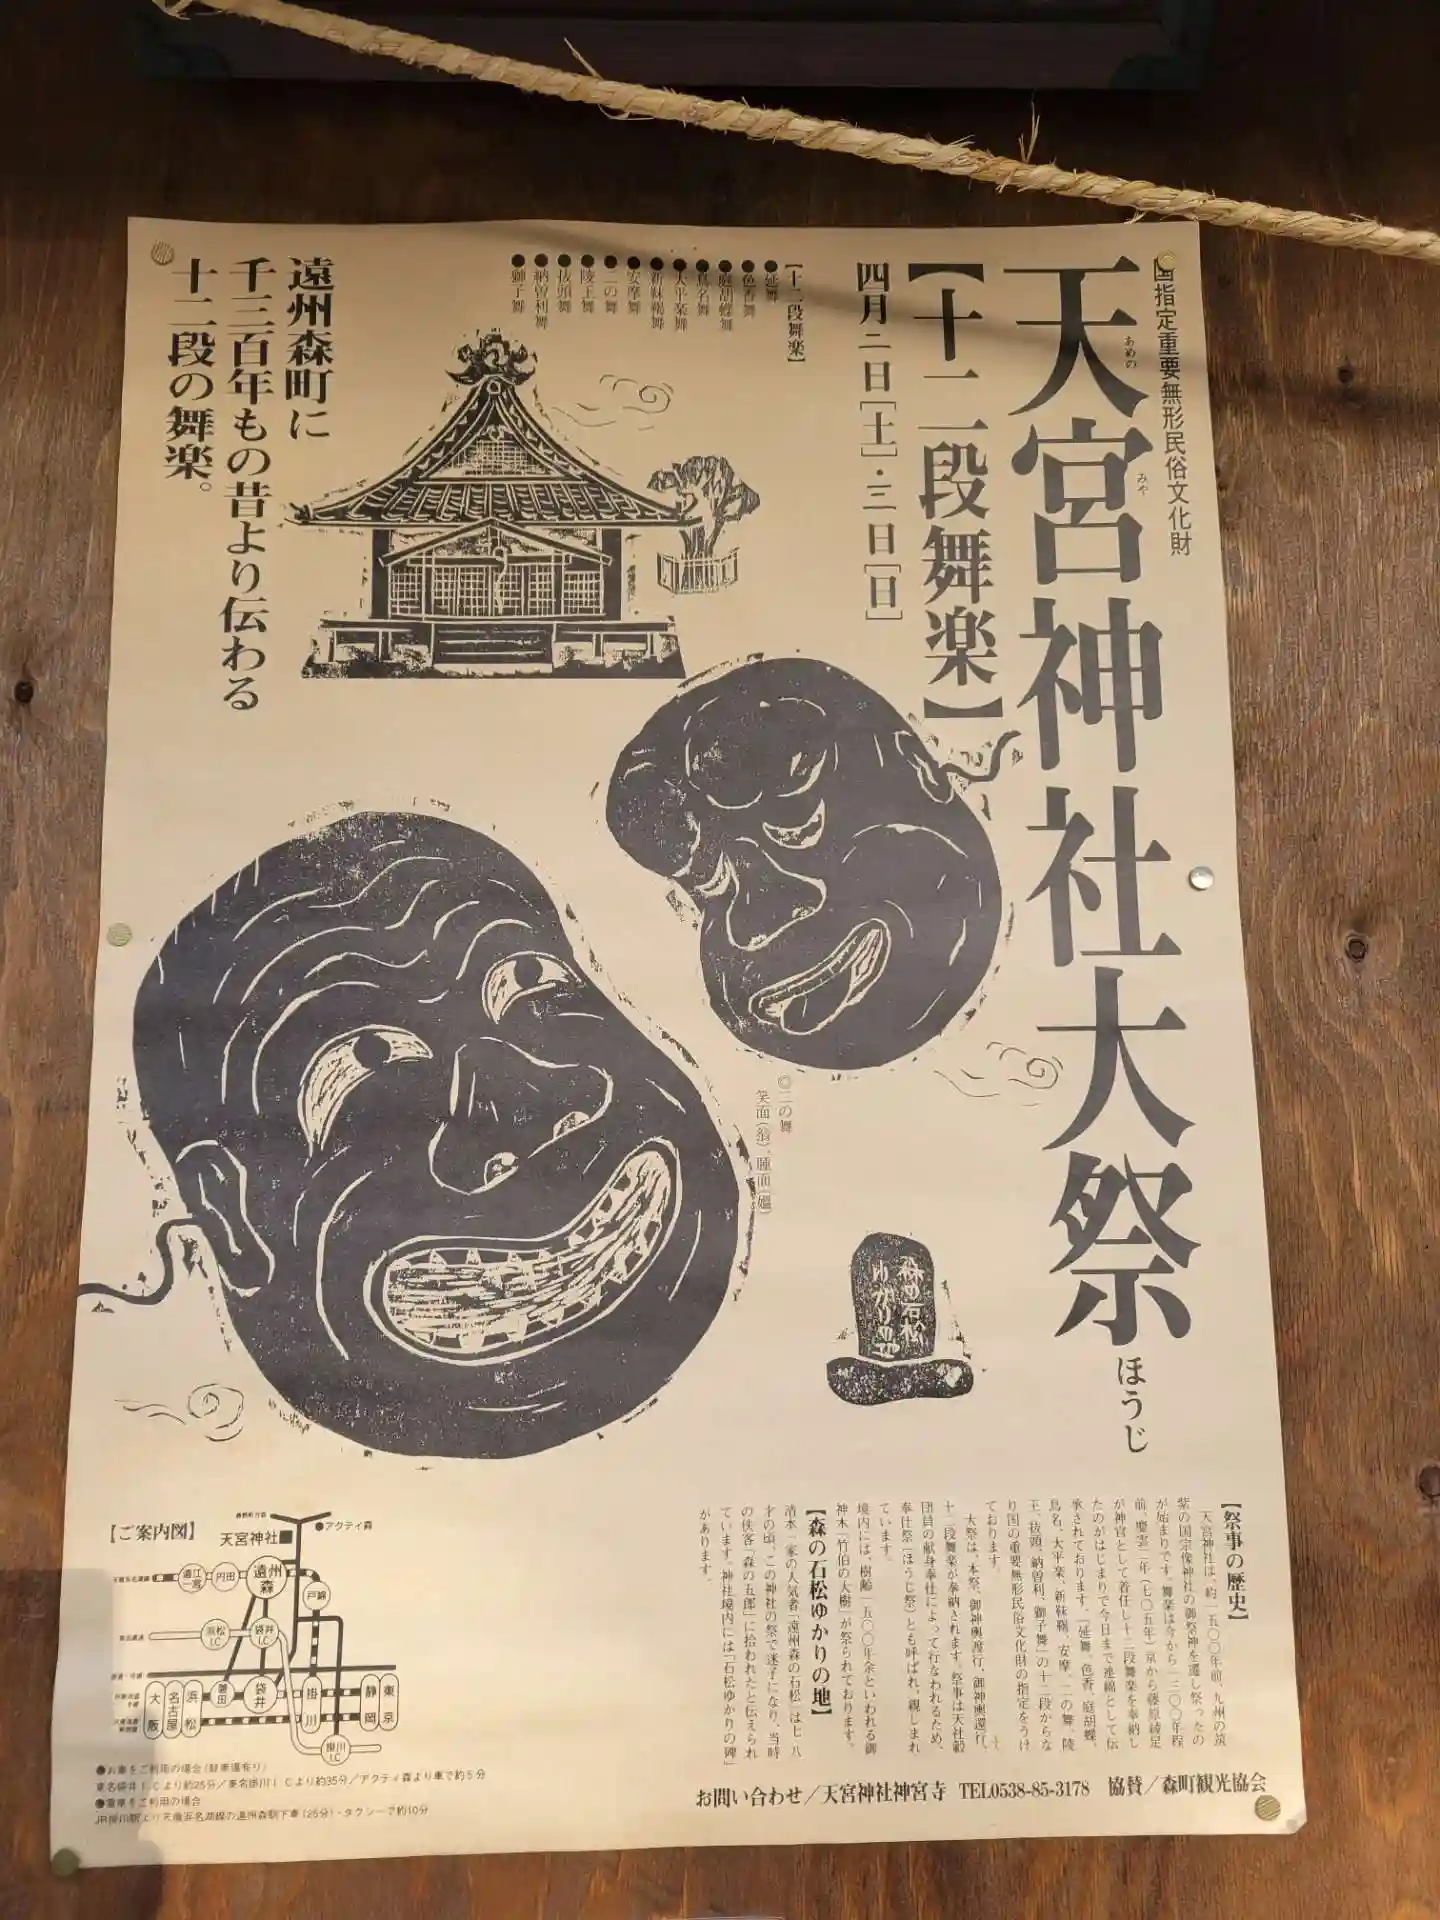 国指定重要無形民俗文化財
天宮神社大祭 ほうじ
あめの みや
【十二段舞楽】
四月二日[土]・三日[日]
【十二段舞楽】
●延舞
●色香舞
●庭胡蝶舞
●鳥名舞
●太平楽舞
●新靺鞨舞
●安摩舞
●二の舞
●陵王舞
●抜頭舞
●納曽利舞
●獅子舞
遠州森町に
千三百年もの昔より伝わる
十二段の舞楽。
◎二の舞
笑面(翁)、腫面(嫗)
森の石松
ゆかりの地
【祭事の歴史】
天宮神社は、約一五〇〇年前、九州の筑
紫の国宗像神社の御祭神を遷し祭ったの
が始まりです。舞楽は今から一三〇〇年程
前、慶雲二年(七〇五年)京から藤原綾足
が神官として着任し十二段舞楽を奉納し
たのがはじまりで今日まで連綿として伝
承されております。「延舞、色香、庭胡蝶、
鳥名、太平楽、新靺鞨、安摩、二の舞、陵
王、抜頭、納曽利、獅子舞」の十二段からな
り国の重要無形民俗文化財の指定をうけ
ております。
大祭は、本祭、御神輿渡行、御神輿還行、
十二段舞楽が奉納されます。祭事は天社穀
団員の献身奉仕によって行なわれるため、
奉仕祭(ほうじ祭)とも呼ばれ、親しまれ
ています。
境内には、樹齢一五〇〇年余といわれる御
神木「竹柏の大樹」が祭られております。
【森の石松ゆかりの地】
清水一家の人気者「遠州森の石松」は七・八
才の頃、この神社の祭で迷子になり、当時
の侠客「森の五郎」に拾われたと伝えられ
ています。神社境内には「石松ゆかりの碑」
があります。
【ご案内図】
天宮神社
●アクティ森
遠江一宮
円田
遠州森
戸綿
浜松I.C
袋井I.C
大阪
名古屋
浜松
磐田
袋井
掛川
静岡
東京
掛川I.C
●お車をご利用の場合(駐車場有り)
東名袋井ＩＣより約25分／東名掛川ＩＣより約35分／アクティ森より車で約5分
●電車をご利用の場合
JR掛川駅より天竜浜名湖線の遠州森駅下車(25分)・タクシーで約10分
お問い合わせ／天宮神社神宮寺 TEL0538-85-3178 協賛／森町観光協会